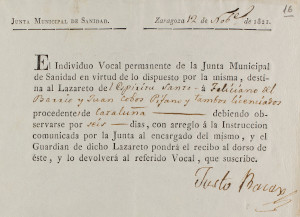 JUNTA MUNICIPAL DE SANIDAD. Zaragoza 12 de Nobre de 1821.
El Individuo Vocal permanente de la Junta Municipal
de Sanidad en virtud de lo dispuesto por la misma, desti-
na al Lazareto del Espiritu Santo á Feliciano del
Barrio y Juan Cobos Pifano y Tambor licenciados
procedente de Cataluña debiendo ob-
servarse por seis dias, con arreglo á la Instruccion
comunicada por la Junta al encargado del mismo, y el
Guardian de dicho Lazareto pondrá el recibo al dorso de
éste, y lo devolverá al referido Vocal, que suscribe.
Justo